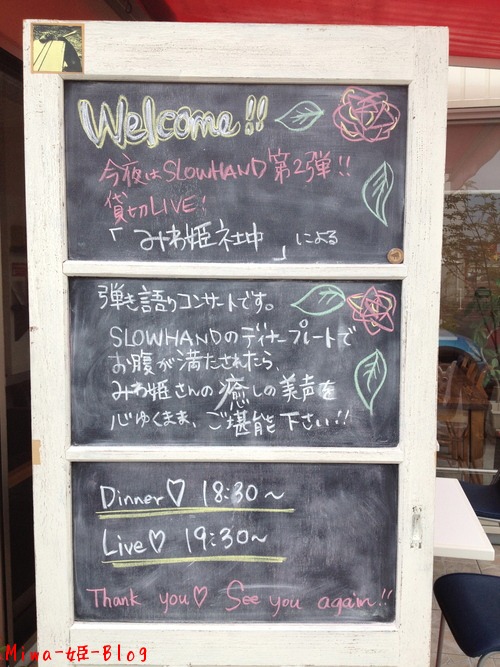 Welcome!!
今夜はSLOWHAND第2弾!!
貸切LIVE!
「みわ姫社中」による
弾き語りコンサートです。
SLOWHANDのディナープレートで
お腹が満たされたら、
みわ姫さんの癒しの美声を
心ゆくまま、ご堪能下さい!!
Dinner♡ 18:30〜
Live♡ 19:30〜
Thank you♡ See you again!!
Miwa-姫-Blog